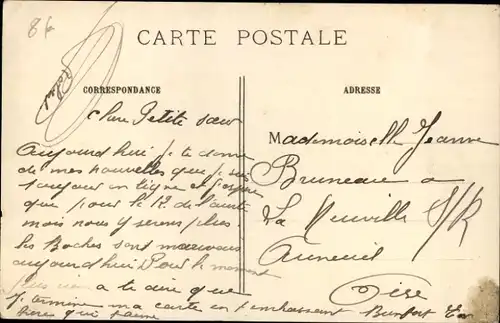 86
CARTE POSTALE
CORRESPONDANCE
ADRESSE
Chere Petite sœur
Aujourdhui je te donne
de mes nouvelles que je suis
toujour en ligne et j'espere
que pour le 12 de l'autre
mois nous y serons plus
les Boches sont mauvais
aujourd'hui Pour le moment
plus a te dire que
Je termine ma carte en t'embrassant
frere qui t'aime
Mademoiselle Jeanne
Bruneau a
La Neuville S/R
Auneuil
Oise